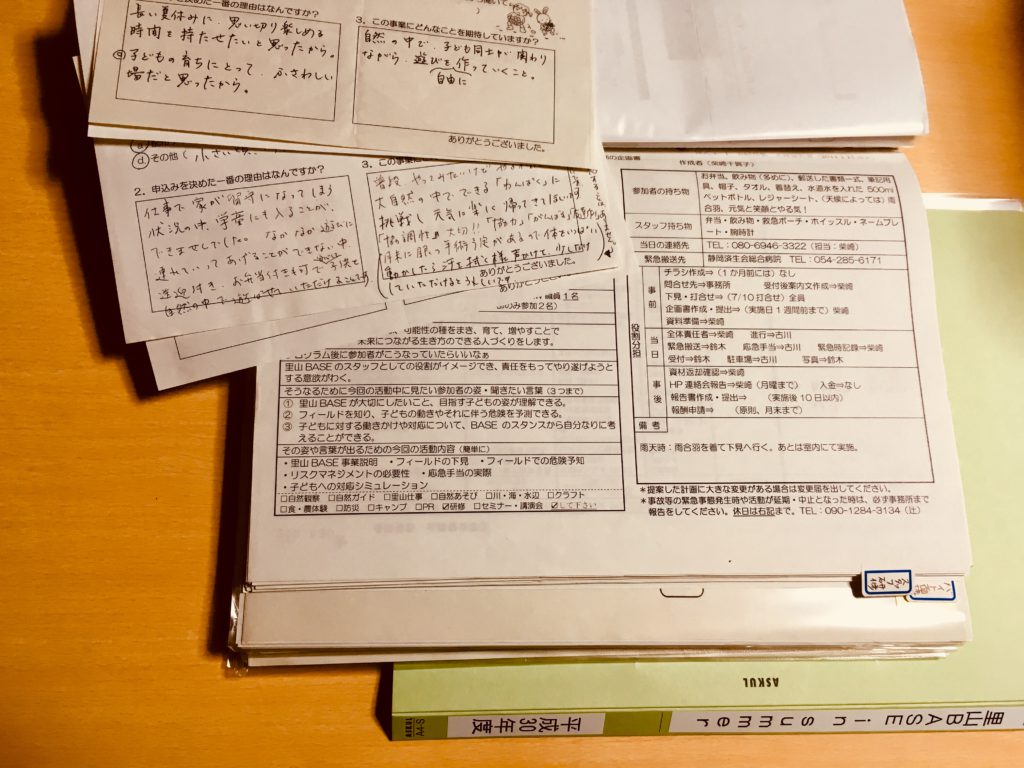 を決めた一番の理由はなんですか？
長い夏休みに、思い切り楽しめる
時間を持たせたいと思ったから。
④子どもの育ちにとって、ふさわしい
場だと思ったから。
3．この事業にどんなことを期待していますか？
自然の中で、子ども同士が関わり
ながら、遊びを作っていくこと。
自由に
ありがとうございました。
d その他（
2．申込みを決めた一番の理由はなんですか？
仕事で家が留守になってしまう
状況の中、学童にも入ることが、
できませんでした。なかなか遊びに
連れていってあげることができない中
送迎付き、お弁当付き
3．この事業に
大自然の中でできる「わんぱく」に
挑戦し、元気に楽に帰ってきてほしい
「協調性」大切!!「協力」「がんばる」
ありがとうございました。
職員１名
のみ参加２名）
可能性の種をまき、育て、増やすことで
未来につながる生き方のできる人づくりをします。
ログラム後に参加者がこうなっていたらいいなぁ
里山 BASE のスタッフとしての役割がイメージでき、責任をもってやり遂げようと
する意欲がわく。
そうなるために今回の活動中に見たい参加者の姿・聞きたい言葉（３つまで）
① 里山 BASE が大切にしたいこと、目指す子どもの姿が理解できる。
② フィールドを知り、子どもの動きやそれに伴う危険を予測できる。
③ 子どもに対する働きかけや対応について、BASE のスタンスから自分なりに考
えることができる。
その姿や言葉が出るための今回の活動内容（簡単に）
・里山 BASE 事業説明 ・フィールドの下見 ・フィールドでの危険予知
・リスクマネジメントの必要性 ・応急手当の実際
・子どもへの対応シミュレーション
□自然観察 □自然ガイド □里山仕事 □自然あそび □川・海・水辺 □クラフト
□食・農体験 □防災 □キャンプ □PR ☑研修 □セミナー・講演会 ☑して下さい
の企画書 作成者（柴崎千賀子）
参加者の持ち物
お弁当、飲み物（多めに）、郵送した書類一式、筆記用
具、帽子、タオル、着替え、水道水を入れた 500ml
ペットボトル、レジャーシート、（天候によっては）雨
合羽、元気と笑顔とやる気！
スタッフ持ち物
弁当・飲み物・救急ポーチ・ホイッスル・ネームプレ
ート・腕時計
当日の連絡先 TEL：080-6946-3322（担当：柴崎）
緊急搬送先 静岡済生会総合病院 TEL：054-285-6171
役割分担
事前
チラシ作成⇒（１か月前には）なし
問合せ先⇒事務所 受付後案内文作成⇒柴崎
下見・打合せ⇒（7/10 打合せ）全員
企画書作成・提出⇒（実施日１週間前まで）柴崎
資料準備⇒柴崎
当日
全体責任者⇒柴崎 進行⇒古川
緊急搬送⇒鈴木 応急手当⇒古川 緊急時記録⇒柴崎
受付⇒鈴木 駐車場⇒古川 写真⇒鈴木
事後
資材返却確認⇒柴崎
HP 連絡会報告⇒柴崎（月曜まで） 入金⇒なし
報告書作成・提出⇒ （実施後 10 日以内）
報酬申請⇒ （原則、月末まで）
備考
雨天時：雨合羽を着て下見へ行く。あとは室内にて実施。
＊提案した計画に大きな変更がある場合は変更届を出してください。
＊事故等の緊急事態発生時や活動が延期・中止となった時は、必ず事務所まで
報告をしてください。休日は右記まで。TEL：090-1284-3134（辻）
スタッフ研修
ASKUL
A4-S
平成30年度
里山BASE in summer